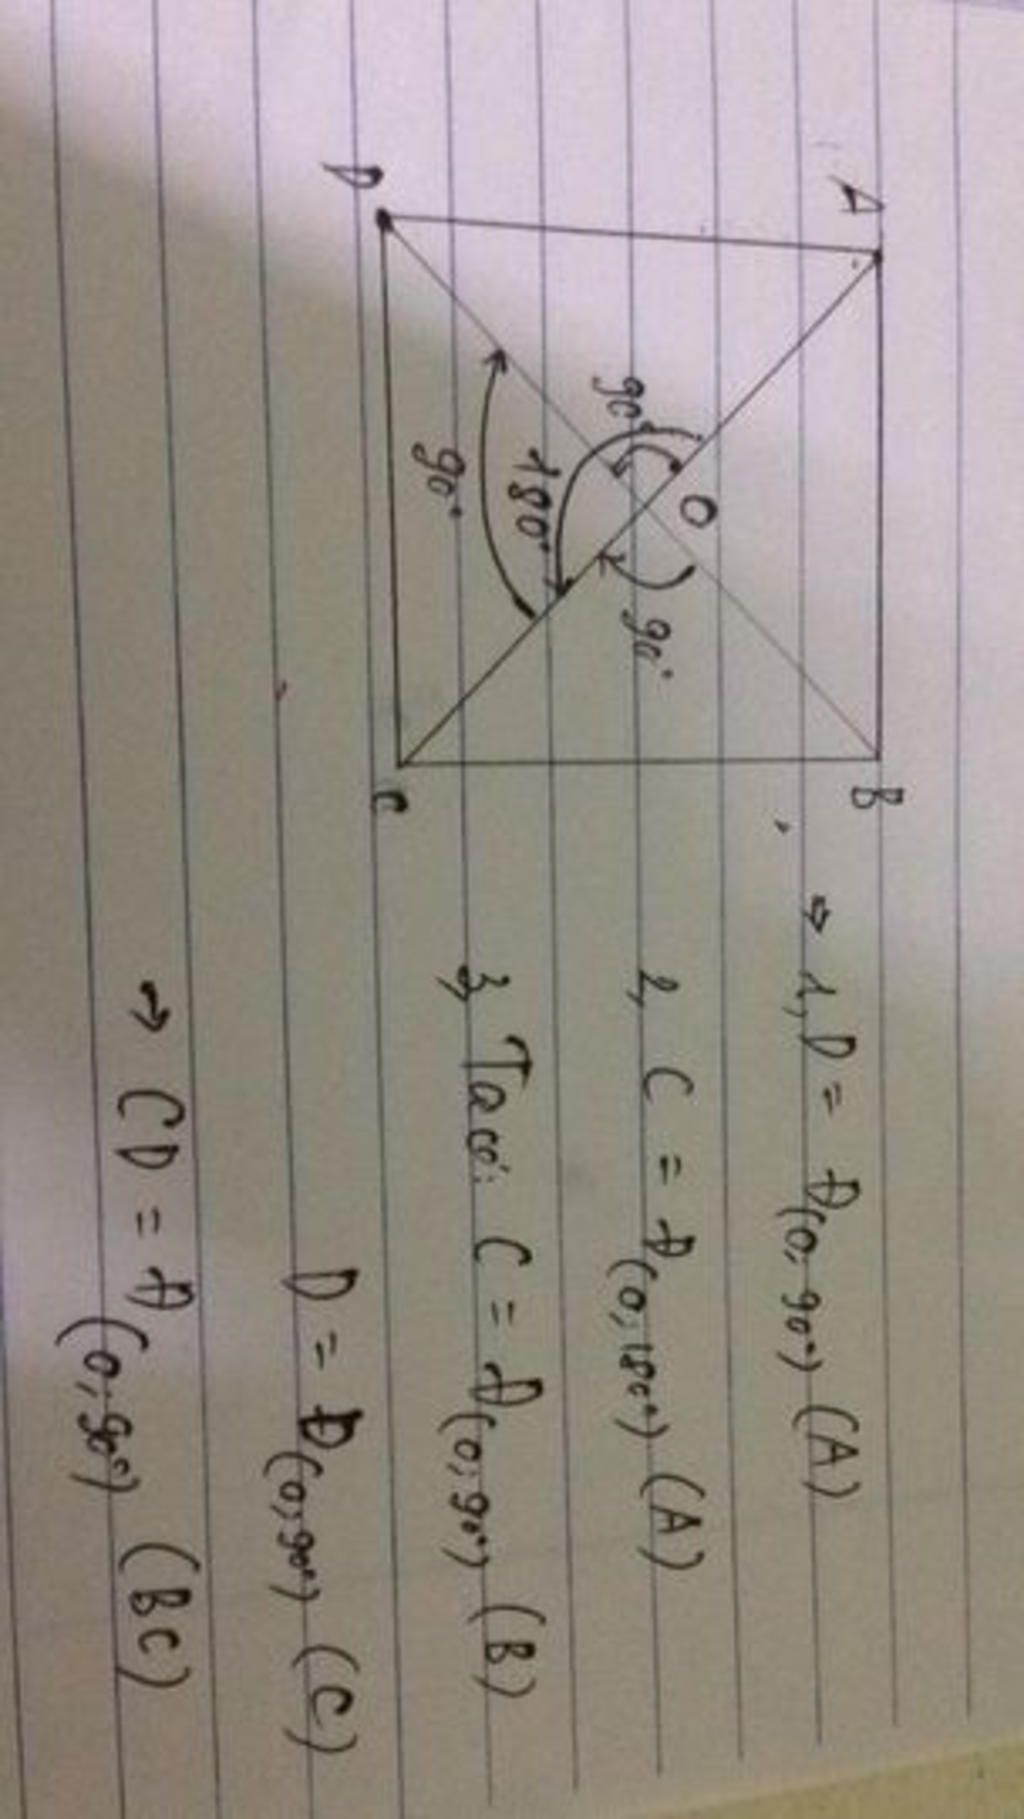 A
B
O
90°
90°
180°
90°
D
C
⇒ 1, D = Đ(O; 90°) (A)
2, C = Đ(O; 180°) (A)
3, Ta có: C = Đ(O; 90°) (B)
D = Đ(O; 90°) (C)
→ CD = Đ(O; 90°) (BC)